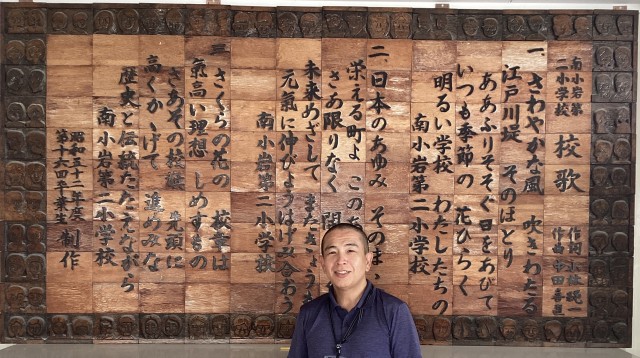 南小岩第
二小学校
校歌
作詞 小林純一
作曲
一 さわやかな風 吹きわたる
江戸川堤 そのほとり
ああふりそそぐ日をあびて
いつも季節の 花ひらく
明るい学校 わたしたちの
南小岩第二小学校
二 日本のあゆみ その
栄える町よ この
さあ限りなく 開
未来めざして またきょうも
元氣に伸びようはげみ合おう
南小岩第二小学校
三 さくらの花の 校章は
氣高い理想 しめすもの
さあその校旗 先頭に
高くかゝげて 進めみな
歴史と伝統たたえながら
南小岩第二小学校
昭和五十二年度
第十六回卒業生 制作